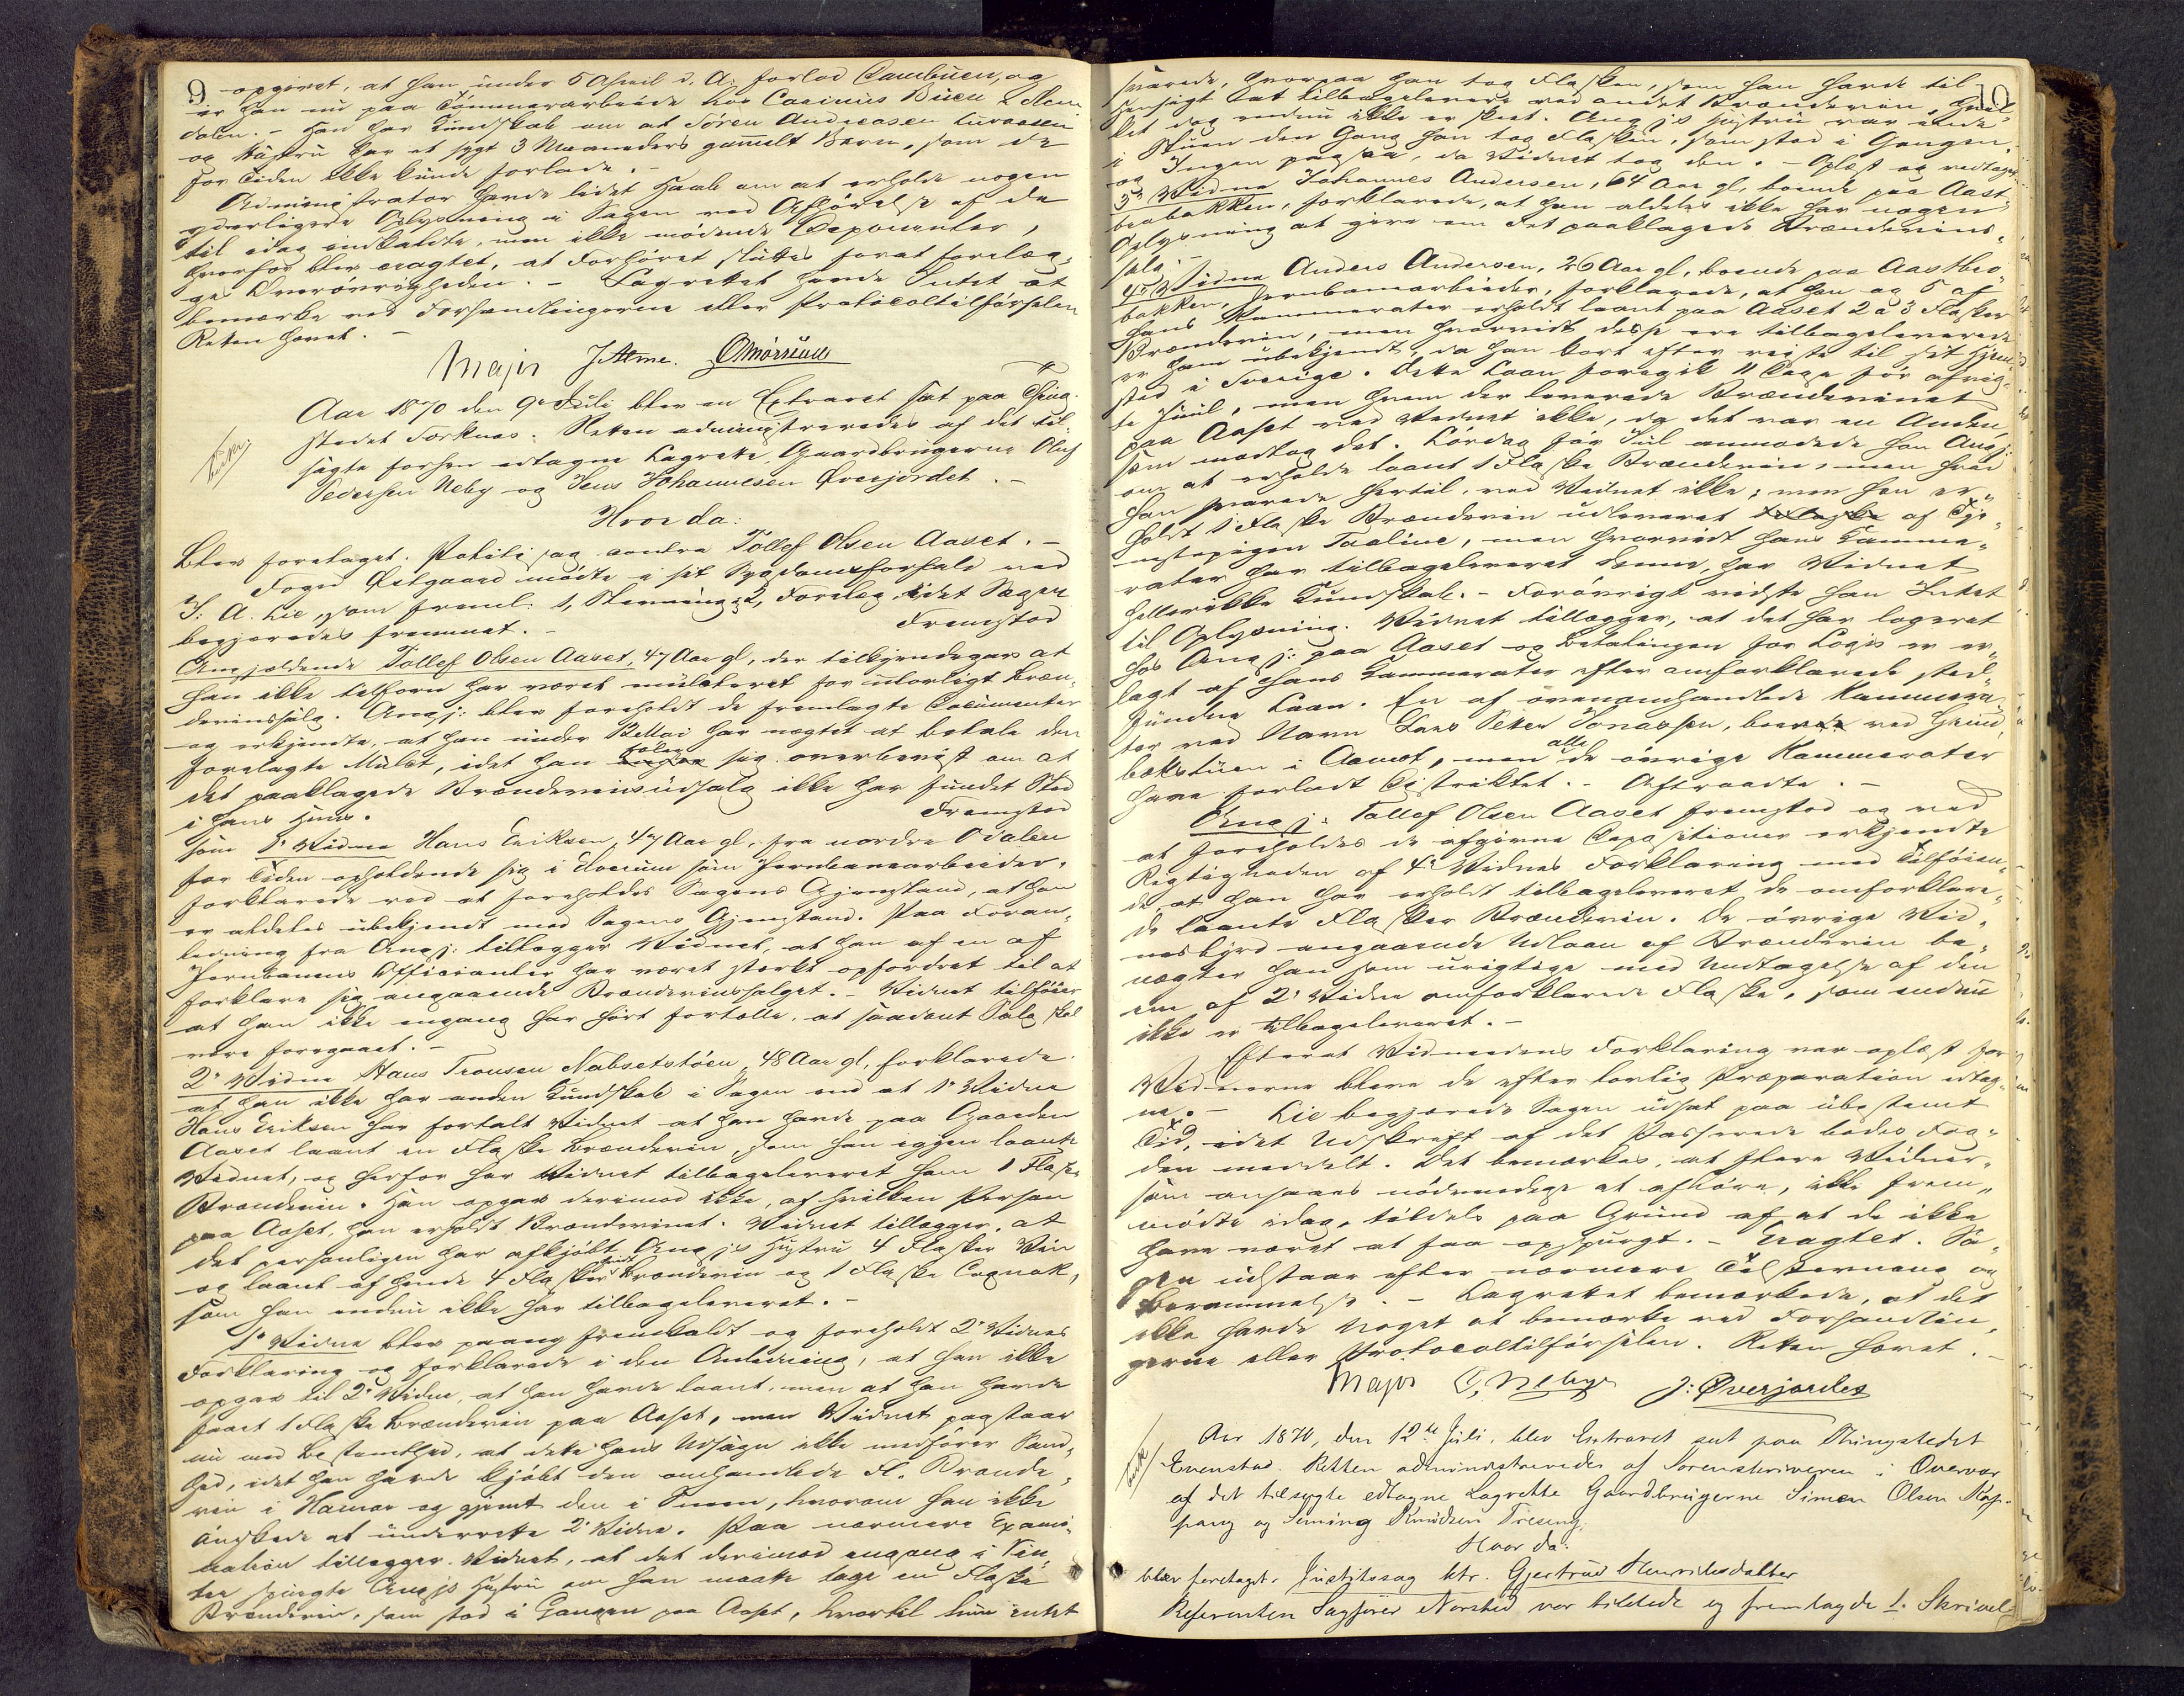 9
opgivet, at han under 5 April d. A. forlod Cambuen, og
er han nu paa Tømmerarbeide hos Casinius Buen i Alm
dalen. – Han har Kundskab om at Søren Andreasen
og Hustru har et sygt 3 Maaneders gamelt Barn, som de
for Tiden ikke kunde forlade. –
Administrator havde lidet Haab om at erholde nogen
yderligere Oplysning i Sagen ved Afhørelse af de
til idag indkaldte, men ikke mødende Deponenter,
hvorfor blev eragtet, at Forhøret sluttes forat forelæg-
ges Overøvrigheden. – Lagrettet havde Intet at
bemærke ved Forhandlingerne eller Protocoltilførselen
Retten hævet. –
Majer
Aar 1870 den 9de Juli blev en Extraret sat paa Thing-
stedet Torknæs. Retten administreredes af det til-
sagte forhen edtagne Lagrette, Gaardbrugerne Oluf
Pedersen Neby og Jens Johannesen Øverjordet. –
Hvor da:
Blev foretaget. Politisag contra Tollef Olsen Aaset. –
Foged Østgaard mødte i sit Sygdomsforfald ved
J: A. Lie, som freml. 1, Stevning, 2, Forelæg, idet Sagen
begjæredes fremmet. – Fremstod
Angjældende Tollef Olsen Aaset, 47 Aar gl, der tilkjendegav at
han ikke tilforn har været mulcteret for ulovligt Bræn-
devinssalg. Angj: blev foreholdt de fremlagte Documenter
og erkjendte, at han under 13 Mai har nægtet at betale den
forelagte Mulct, idet han føler sig overbevist om at
det paaklagede Brændevinsudsalg ikke har fundet Sted
i hans Huus. Fremstod
som 1e Vidne Hans Eriksen, 47 Aar gl, fra nordre Odalen
for Tiden opholdende sig i Elverum som Jernbanearbeider.
forklarede ved at foreholdes Sagens Gjenstand, at han
er aldeles ubekjendt med Sagens Gjenstand. Paa Foran-
ledning fra Angj: tillægger Vidnet, at han af en af
Jernbanens Officianter har været stærkt opfordret til at
forklare sig angaaende Brændevinssalget. – Vidnet tilføier
at han ikke engang har hørt fortælle, at saadant Salg skal
være foregaaet. –
2e Vidne Hans Tronsen Nabsetstøen, 48 Aar gl, forklarede
at han ikke har anden Kundskab i Sagen end at 1e Vidne
Hans Eriksen har fortalt Vidnet at han havde paa Gaarden
Aaset laant en Flaske Brændevin, som han igjen laante
Vidnet, og herfor har Vidnet tilbageleveret ham 1 Flaske
Brændevin. Han opgav derimod ikke, af hvilken Person
paa Aaset, han erholdt Brændevinet. Vidnet tillægger, at
det personligen har afkjøbt Angjs Hustru 4 Flasker Vin
og laant af hende 4 Flasker Brændevin og 1 Flaske Cognak,
som han endnu ikke har tilbageleveret. –
1e Vidne blev paany fremkaldt og foreholdt 2e Vidnes
Forklaring og forklarede i den Anledning, at han ikke
opgav til 2e Vidne, at han havde laant, men at han havde
faaet 1 Flaske Brændevin paa Aaset, men Vidnet paastaar
nu med Bestemthed, at dette hans Udsagn ikke medfører Sand-
hed, idet han havde kjøbt den omhandlede Fl. Brænde-
vin i Hamar og gjemt den i , hvorom han ikke
ønskede at underrette 2e Vidne. Paa nærmere Exami-
nation tillægger Vidnet, at det derimod engang i Vin-
ter spurgte Angjs Hustru om han maatte tage en Flaske
Brændevin, som stod i Gangen paa Aaset, hvortil hun intet
10
svarede, hvorpaa han tog Flasken, som han havde til
Hensigt at tilbagelevere med andet Brændevin, hvil-
ket dog endnu ikke er skeet. Angjs Hustru var inde
i Stuen den Gang han tog Flasken, som stod i Gangen,
og Ingen paasaa, da Vidnet tog den. – Oplæst og vedtaget
3e Vidne Johannes Andersen, 64 Aar gl, boende paa Aast-
brobakken, forklarede, at han aldeles ikke har nogen
Oplysning at give om det paaklagede Brændevins-
salg. –
4e Vidne Anders Andersen, 26 Aar gl, boende paa Aastbro-
bakken, Jernbanearbeider, forklarede, at han og 5 af
hans Kammerater erholdt laant paa Aaset 2 á 3 Flasker
Brændevin, men hvorvidt disse ere tilbageleverede
er ham ubekjendt, da han kort efter reiste til sit Hjem-
sted i Sverige. Dette Laan foregik 11 Dage før afvig-
te Juul, men hvem der leverede Brændevinet
paa Aaset ved Vidnet ikke, da det var en Anden,
som modtog det. Lørdag før Juul anmodede han Angj:
om at erholde laant 1 Flaske Brændevin, men hvad
han svarede hertil, ved Vidnet ikke; men han er-
holdt 1 Flaske Brændevin udleveret af Tje-
nestepigen Taaline, men hvorvidt hans Kamme-
rater har tilbageleveret denne, har Vidnet
hellerikke Kundskab. – Forøvrigt vidste han Intet
til Oplysning. Vidnet tillægger, at det har logeret
hos Angj: paa Aaset og Betalingen for Logis er er-
lagt af hans Kammerater efter omforklarede sted-
fundne Laan. En af ovenomhandlede Kammera-
ter ved Navn Lars Peter Jonassen, boer ved Grund
bækstuen i Aamot, men alle de øvrige Kammerater
have forladt Distriktet. – Aftraadte. –
Angj: Tollef Olsen Aaset fremstod og ved
at foreholdes de afgivne Depositioner erkjendte
Rigtigheden af 4e Vidnes Forklaring med Tilføien-
de, at han har erholdt tilbageleveret de omforklare-
de laante Flasker Brændevin. De øvrige Vid-
nesbyrd angaaende Udlaan af Brændevin be-
nægter han som urigtige med Undtagelse af den
ene af 2e Vidne omforklarede Flaske, som endnu
ikke er tilbageleveret. –
Efterat Vidneedens Forklaring var oplæst for
Vidnerne bleve de efter lovlig Præparation edtag-
ne. – Lie begjærede Sagen udsat paa ubestemt
Tid, idet Udskrift af det Passerede bedes Fog-
den meddelt. Det bemærkes, at flere Vidner,
som ansaaes nødvendige at afhøre, ikke frem-
mødte idag, tildels paa Grund af at de ikke
have været at faa opspurgt. – Eragtet. Sa-
gen udstaar efter nærmere Tilstevning og
Berammelse. – Lagrettet bemærkede, at det
ikke havde Noget at bemærke ved Forhandlin-
gerne eller Protocoltilførselen. Retten hævet. –
Majer O, Neby J: Øverjordet
Aar 1870, den 12te Juli, blev Extraret sat paa Thingstedet
Evenstad. Retten administreredes af Sorenskriveren i Overvær
af det tilsagte edtagne Lagrette Gaardbrugerne Simen Olsen Kop-
pang og Siming Knudsen Treseng.
Hvor da:
blev foretaget. Justitssag ktr. Gjertrud Henriksdatter
Referenten Sagfører Norsted var tilstede og fremlagde 1. Skrivel-